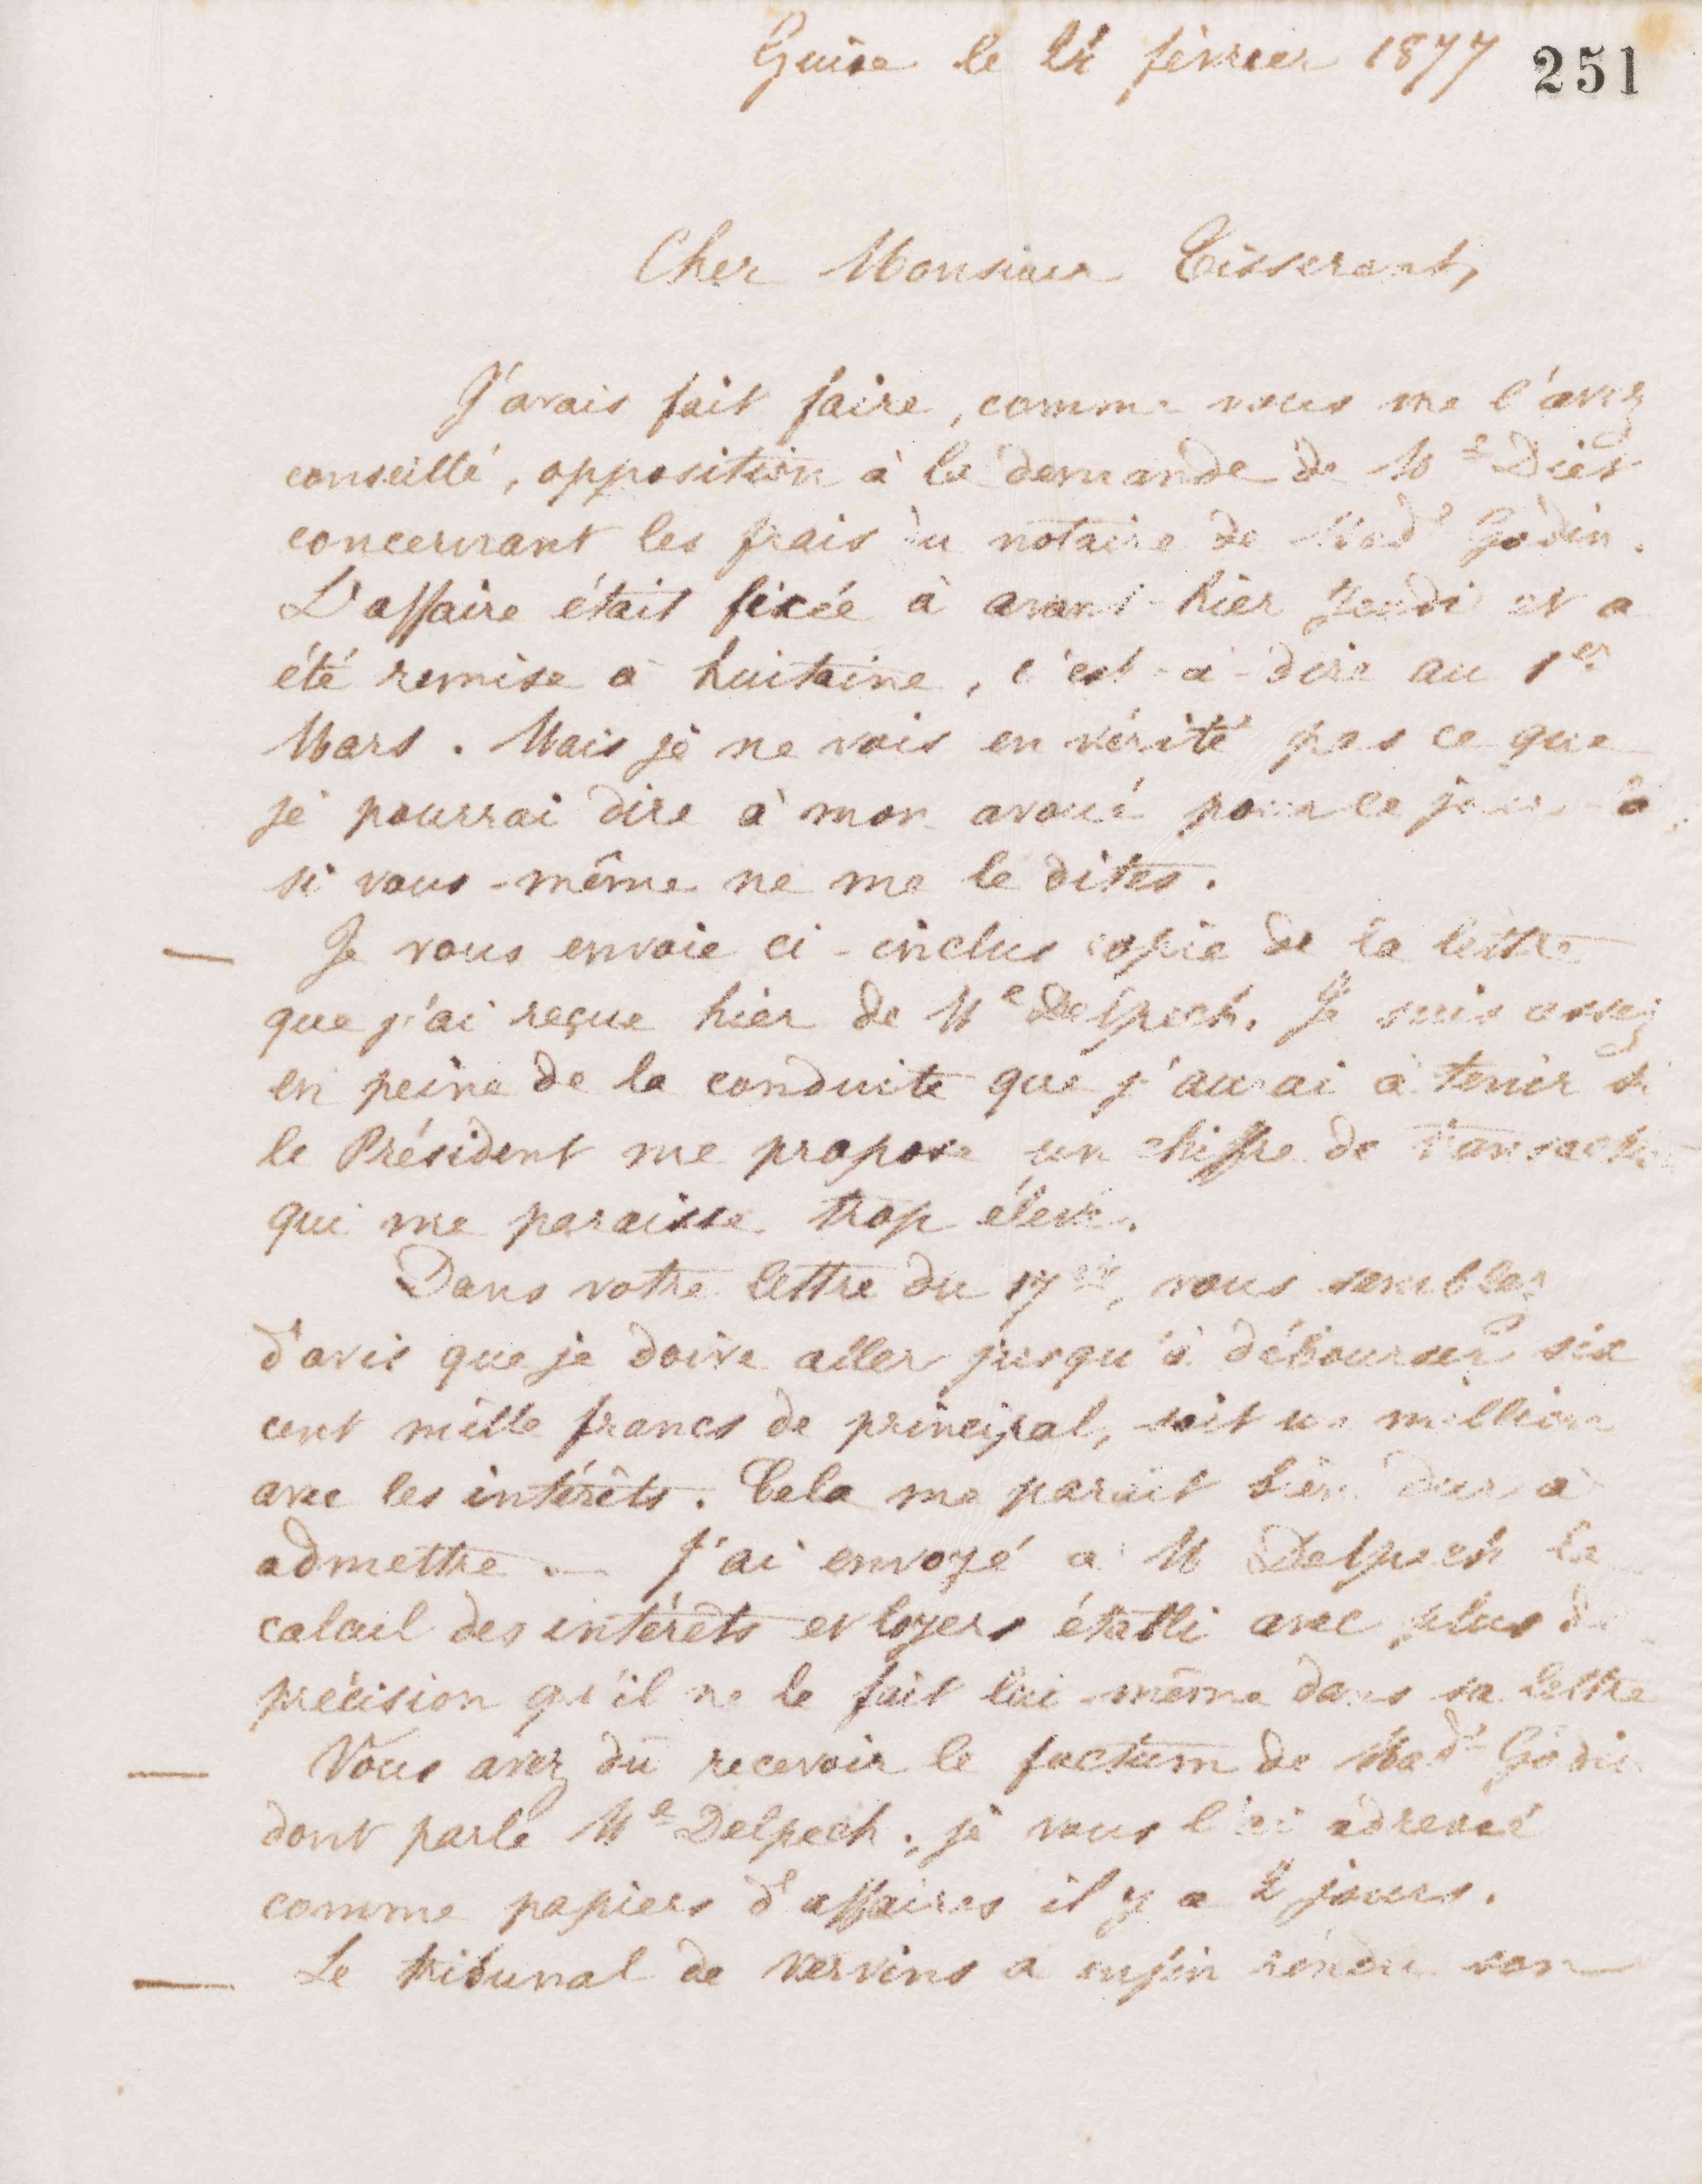 Guise le 24 février 1877 251
Cher Monsieur Tisserant,
J'avais fait faire, comme vous me l'avez
conseillé, opposition à la demande de Me Diet
concernant les frais du notaire de Mad^e Godin.
L'affaire était fixée à avant-hier Jeudi et a
été remise à huitaine, c'est-à-dire au 1er
Mars. Mais je ne vois en vérité pas ce que
je pourrai dire à mon avoué pour ce jour-là,
si vous-même ne me le dites.
— Je vous envoie ci-inclus copie de la lettre
que j'ai reçue hier de Me Delpech. Je suis assez
en peine de la conduite que j'aurai à tenir si
le Président me propose un chiffre de transaction
qui me paraisse trop élevé.
Dans votre lettre du 17, vous semblez
d'avis que je doive aller jusqu'à débourser six
cent mille francs de principal, soit un million
avec les intérêts. Cela me paraît bien dur à
admettre. — J'ai envoyé à M Delpech le
calcul des intérêts et loyers établi avec plus de
précision qu'il ne le fait lui-même dans sa lettre
— Vous avez dû recevoir le factum de Mad^e Godin
dont parle Me Delpech; je vous l'ai adressé
comme papiers d'affaires il y a 2 jours.
— Le tribunal de Vervins a enfin rendu son